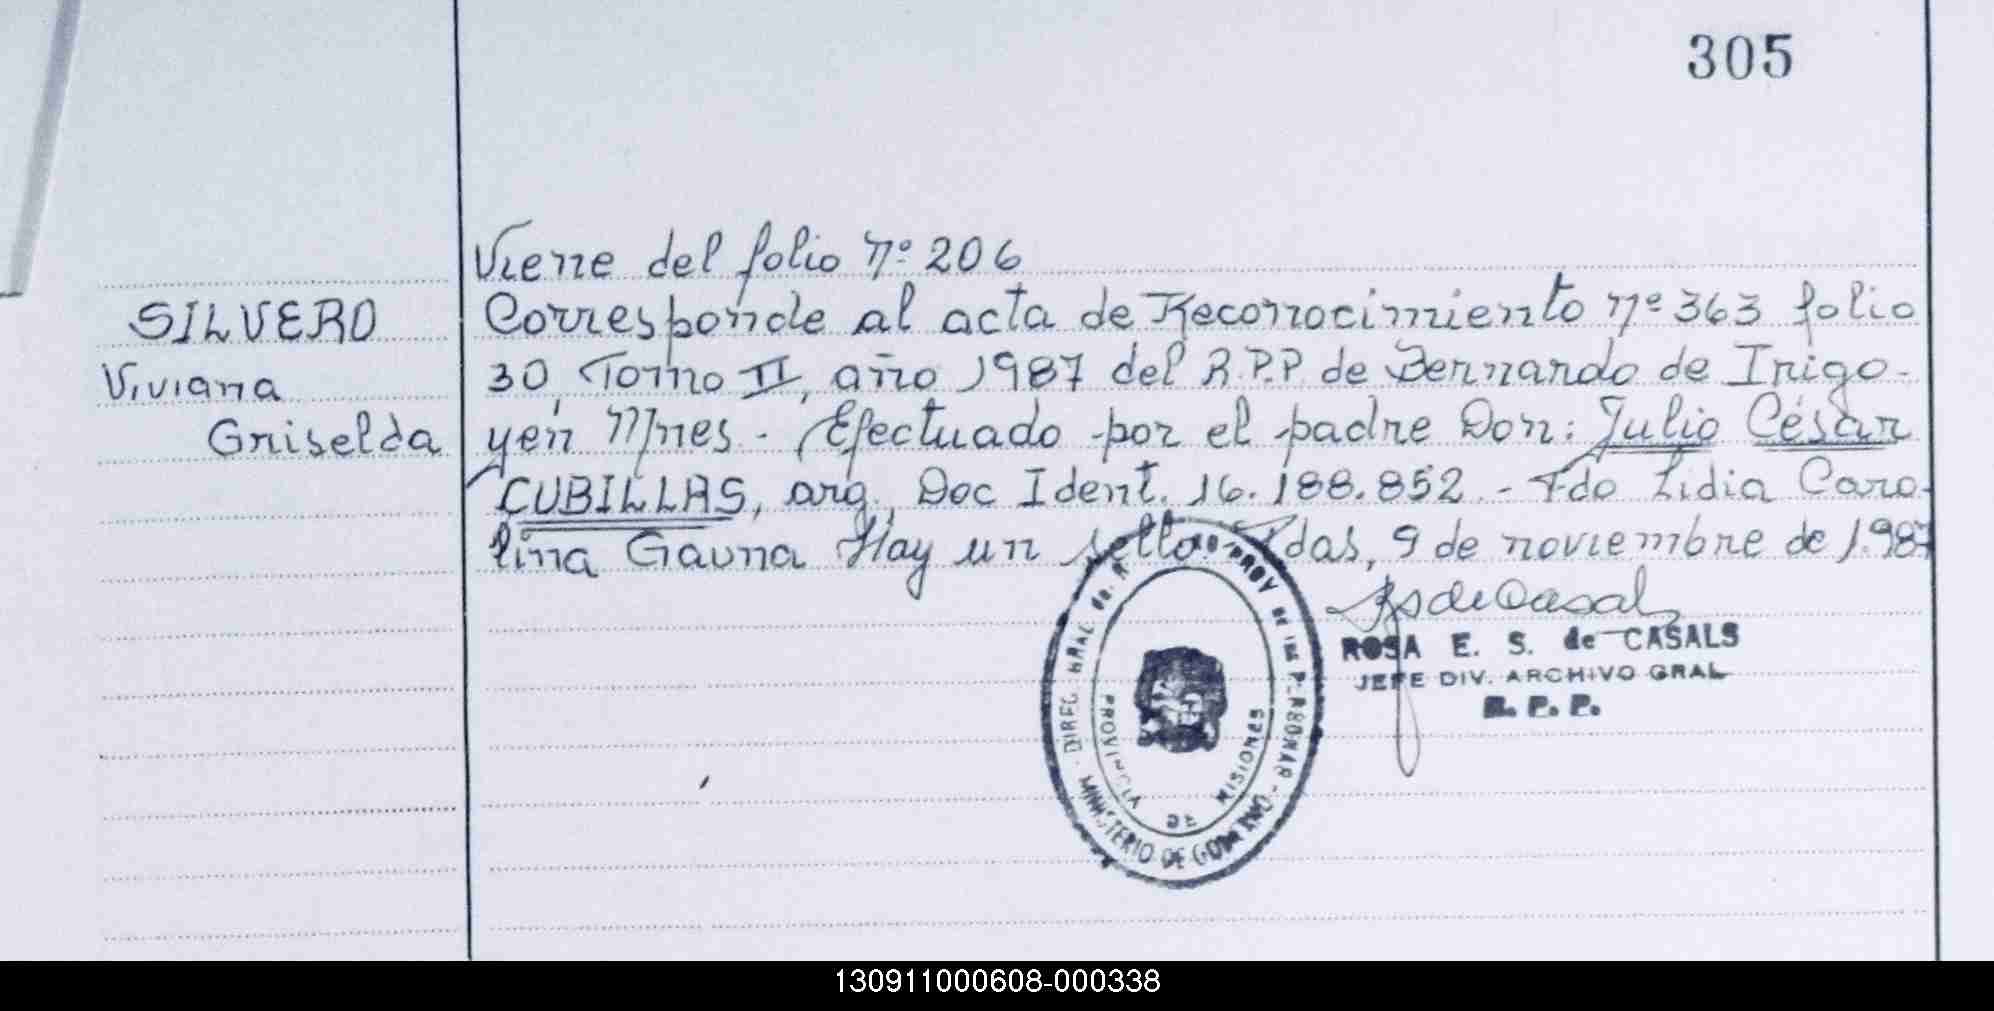 305
Viene del folio nº 206
SILVERO
Viviana
Griselda
Corresponde al acta de Reconocimiento nº 363 folio
30, Tomo II, año 1987 del R.P.P. de Bernardo de Irigo-
yen Mnes - Efectuado por el padre Don: Julio César
CUBILLAS, arg. Doc Ident. 16.188.852 - Fdo Lidia Caro-
lina Gauna Hay un sello. Pdas, 9 de noviembre de 1.987
ROSA E. S. de CASALS
JEFE DIV. ARCHIVO GRAL
R. P. P.
MINISTERIO DE GOBIERNO
PROVINCIA DE MISIONES
130911000608-000338